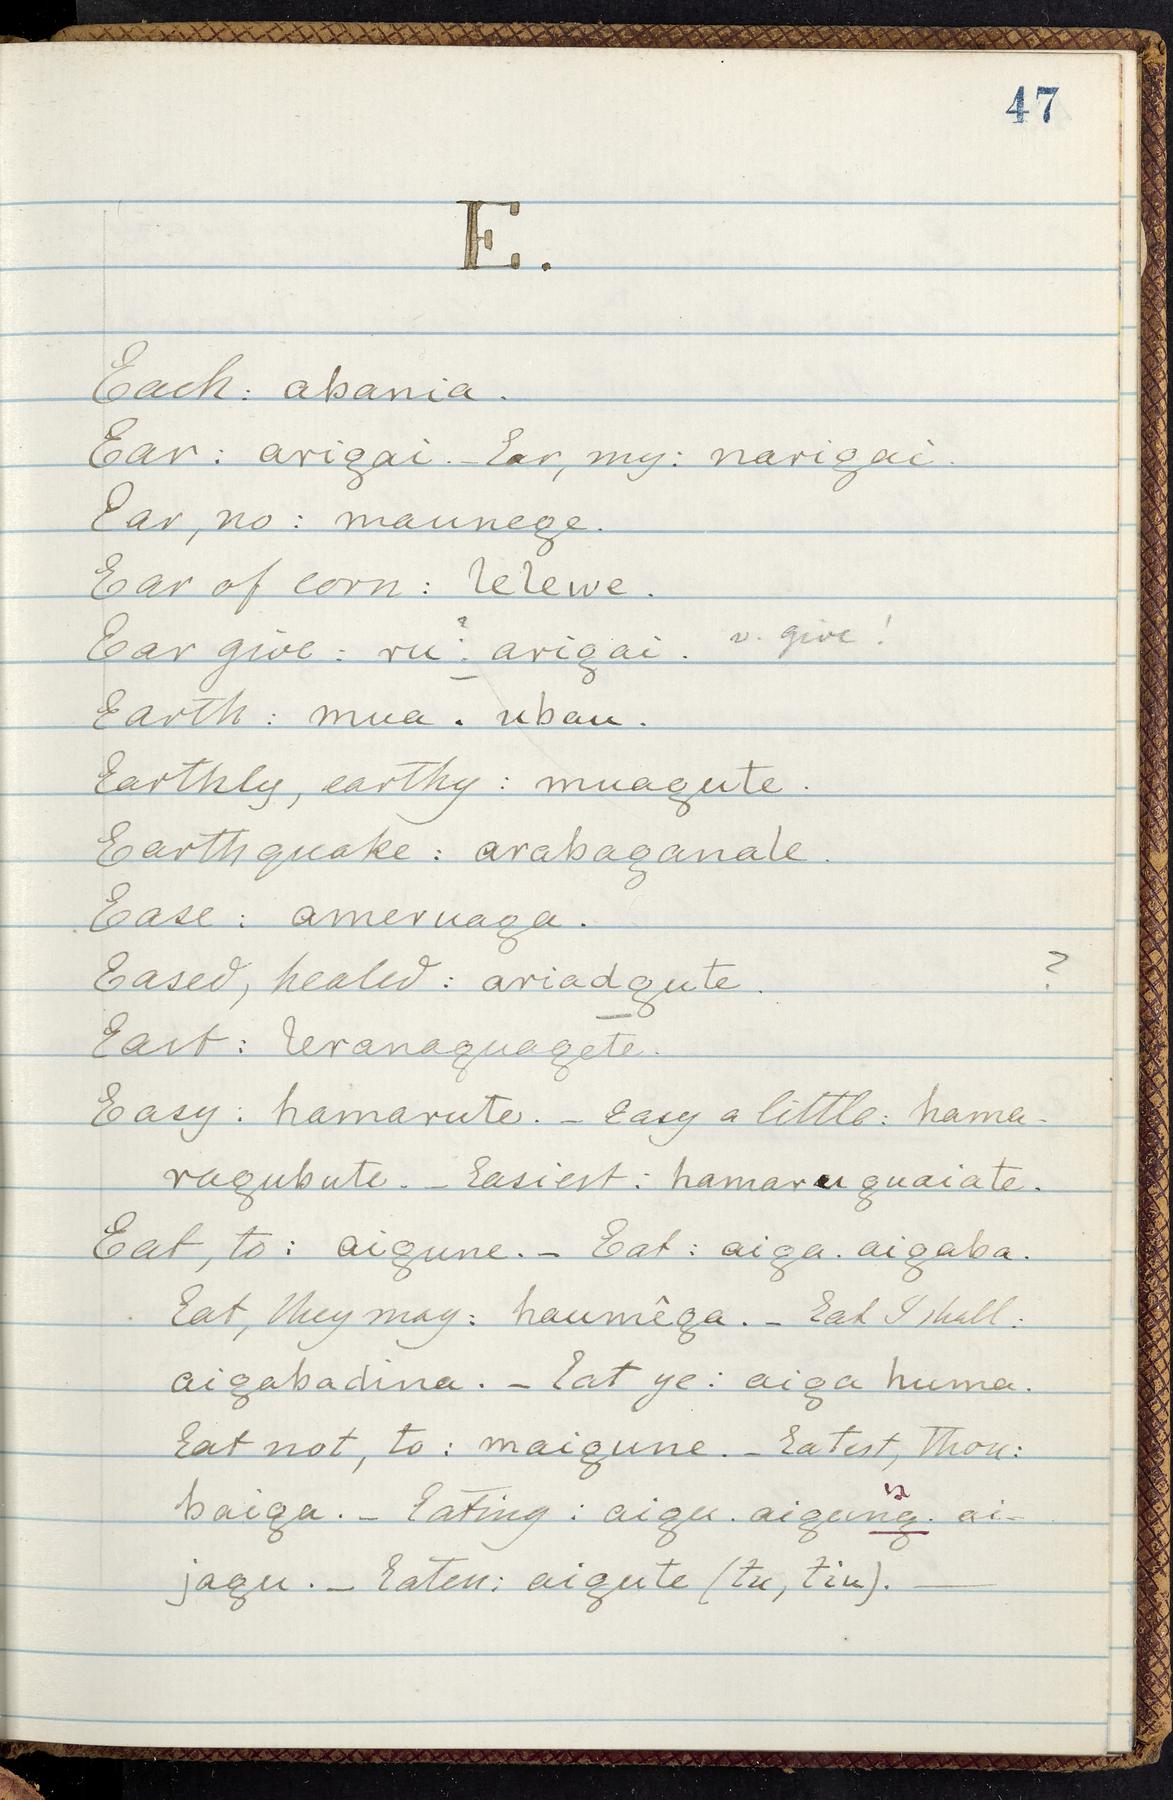 47
E.
Each: abania.
Ear: arigai. – Ear, my: narigai.
Ear, no: maunege.
Ear of corn: lelewe.
Ear give: ru ? : arigai. v. give!
Earth: mua. ubau.
Earthly, earthy: muagute.
Earthquake: arabaganale.
Ease: ameruaga.
Eased, healed: ariadgute. ?
East: leranaguagete.
Easy: hamarute. – Easy a little: hama-
ragubute. – Easiest: hamaruguaiate.
Eat, to: aigune. – Eat: aiga. aigaba.
Eat, they may: haumêga. – Eat I shall:
aigabadina. – Eat ye: aiga huma.
Eat not, to: maigune. – Eatest, Thou:
baiga. – Eating: aigu. aigung. ai-
jagu. – Eaten: aigute (tu, tiu). —